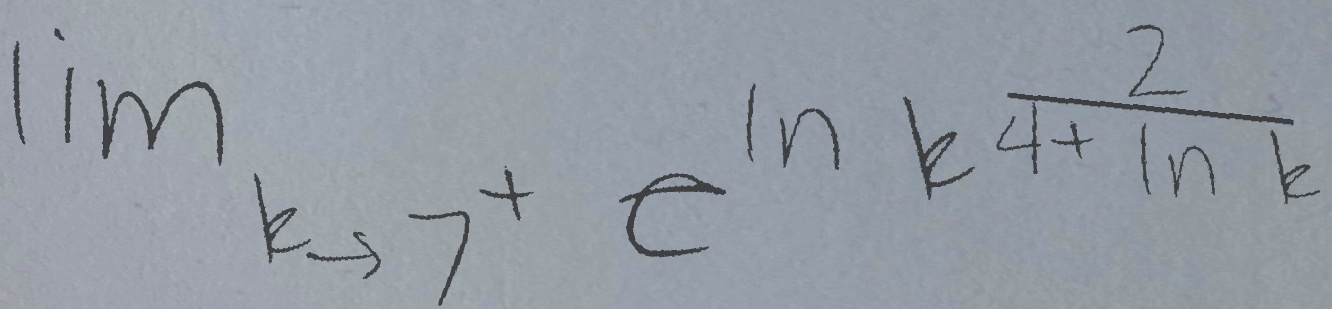 \lim_{k \to 7^+} e^{\ln k^{\frac{2}{4 + \ln k}}}